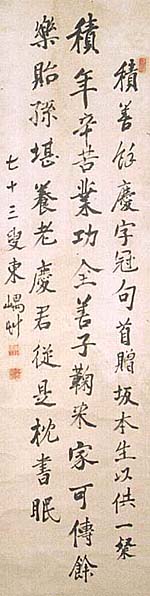 積善餘慶字冠句首贈坂本生以供一粲
積年辛苦業功全善子鞠来家可傳餘
樂貽孫堪養老慶君從是枕書眠
七十三叟東嵎艸